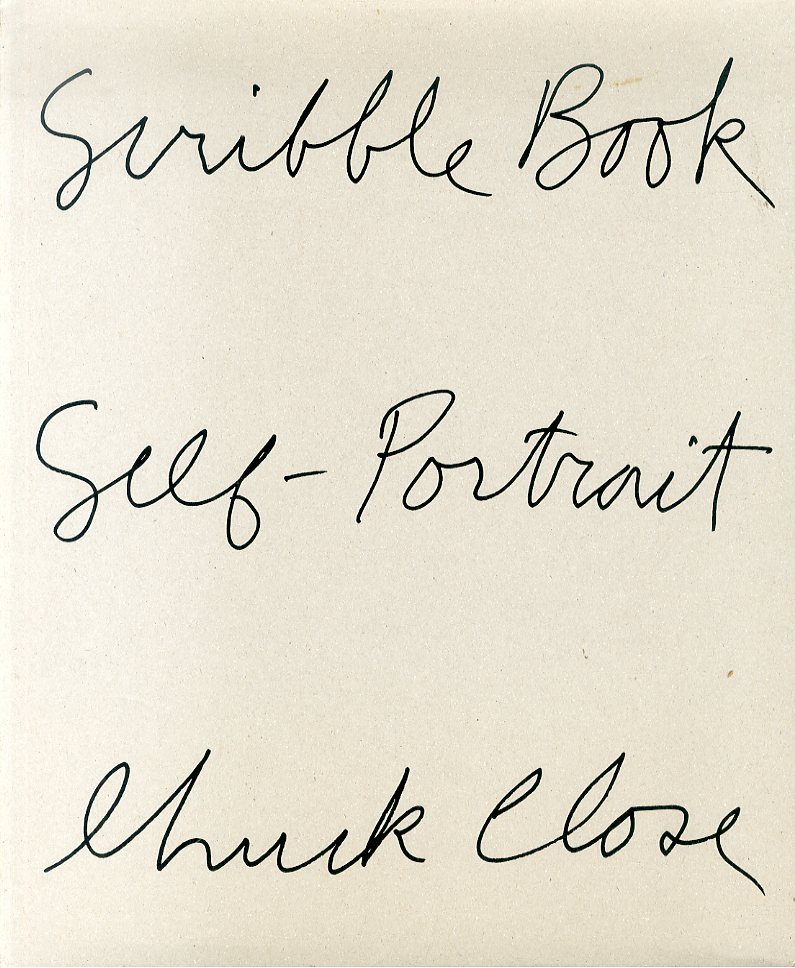 Scribble Book
Self-Portrait
Chuck Close